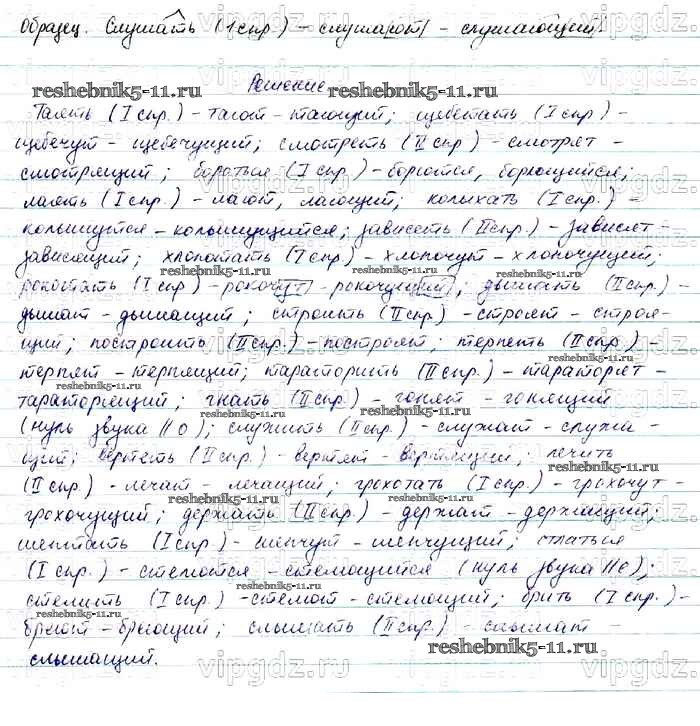 Образец. Слушать (1 спр.) – слушают – слушающий.
Решение
Таять (I спр.) – тают – тающий; щебетать (I спр.) –
щебечут – щебечущий; смотреть (II спр.) – смотрят –
смотрящий; бороться (I спр.) – борются, борющийся;
лаять (I спр.) – лают, лающий; колыхать (I спр.) –
колышутся – колышущийся; зависеть (II спр.) – зависят –
зависящий; хлопотать (I спр.) – хлопочут – хлопочущий;
рокотать (I спр.) – рокочут – рокочущий; дышать (II спр.) –
дышат – дышащий; строить (II спр.) – строят – строя-
щий; построить (II спр.) – построят; терпеть (II спр.) –
терпят – терпящий; тараторить (II спр.) – тараторят –
тараторящий; гнать (II спр.) – гонят – гонящий
(нуль звука // о); служить (II спр.) – служат – служа-
щий; вертеть (II спр.) – вертят – вертящий; лечить
(II спр.) – лечат – лечащий; грохотать (I спр.) – грохочут –
грохочущий; держать (II спр.) – держат – держащий;
шептать (I спр.) – шепчут – шепчущий; стлаться
(I спр.) – стелются – стелющийся (нуль звука // е);
стелить (I спр.) – стелют – стелющий; брить (I спр.) –
бреют – бреющий; слышать (II спр.) – слышат –
слышащий.
reshebnik5-11.ru
vipgdz.ru